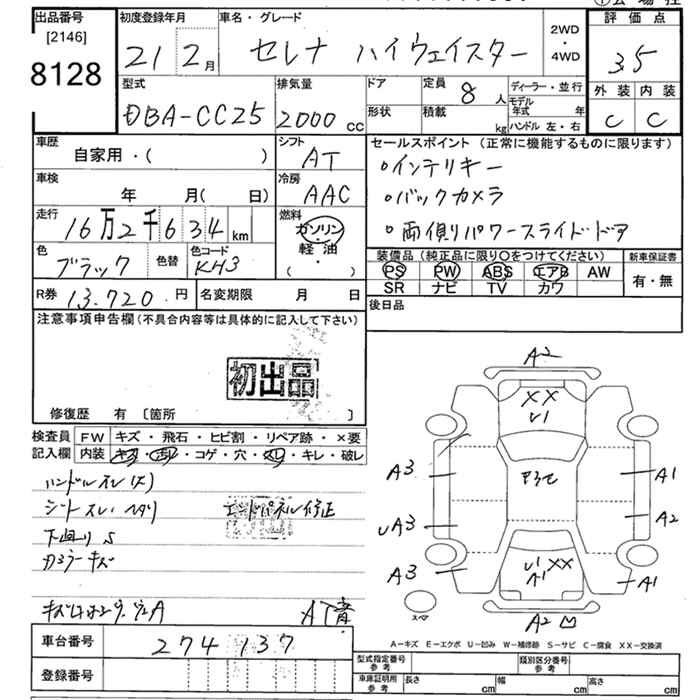 出品番号
[2146]
8128
初度登録年月
21 2月
車名・グレード
セレナ ハイウェイスター
2WD
・
4WD
評価点
3.5
外装 内装
C C
型式
DBA-CC25
排気量
2000 CC
ドア
形状
定員
8人
積載
kg
ディーラー・並行
モデル年式 年
ハンドル 左・右
車歴
自家用・( )
シフト
AT
車検
年 月( 日)
冷房
AAC
走行
16万2千634km
燃料
ガソリン
軽油
( ・ )
色
ブラック
色替
色コード
KH3
R券 13,720円
名変期限 月 日
セールスポイント(正常に機能するものに限ります)
○インテリキー
○バックカメラ
○両側パワースライドドア
装備品(純正品に限り○をつけてください)
PS PW ABS エアB AW
SR ナビ TV カワ
新車保証書
有・無
後日品
注意事項申告欄(不具合内容等は具体的に記入して下さい)
初出品
修復歴 有 〔箇所 〕
検査員 FW キズ・飛石・ヒビ割・リペア跡・×要
記入欄 内装 キズ・コゲ・穴・スレ・キレ・破レ
ハンドルスレ(大)
シートスレ・ヘタリ
エンドパネル修正
下回りS
カラーキズ
AT音
車台番号 274137
登録番号
A2
XX
U1
A3
A1
UA3
A2
A3
U1 XX
A1
A1
A2
スペア
A-キズ E-エクボ U-凹み W-補修跡 S-サビ C-腐食 XX-交換済
型式指定番号
参考
類別区分番号
参考
車庫証明用
参考
長さ cm
幅 cm
高さ cm